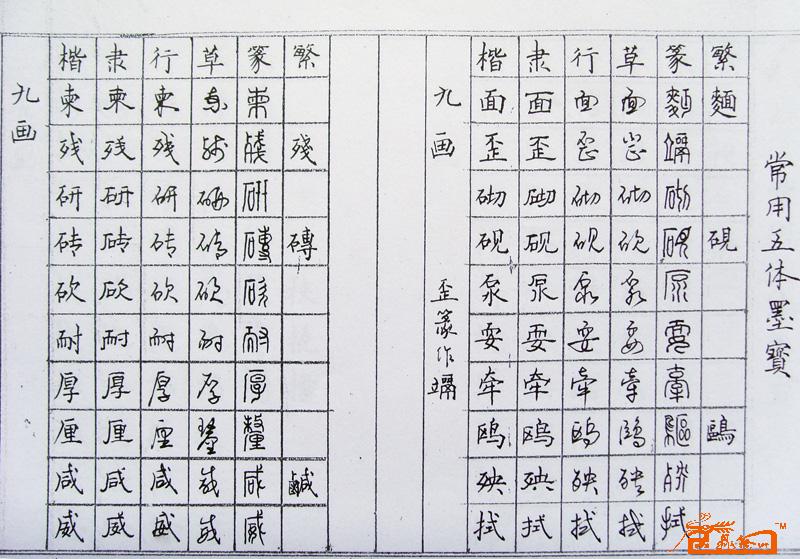 常用五体墨寶
繁麵硯鷗
篆麵竵砌硯泵耍牽鷗殃拭
草面歪砌砚泵耍牵鸥殃拭
行面歪砌砚泵耍牵鸥殃拭
隶面歪砌砚泵耍牵鸥殃拭
楷面歪砌砚泵耍牵鸥殃拭
九画 歪篆作竵
繁殘磚鹹
篆柬殘研磚砍耐厚釐咸威
草柬残研砖砍耐厚釐咸威
行柬残研砖砍耐厚厘咸威
隶柬残研砖砍耐厚厘咸威
楷柬残研砖砍耐厚厘咸威
九画